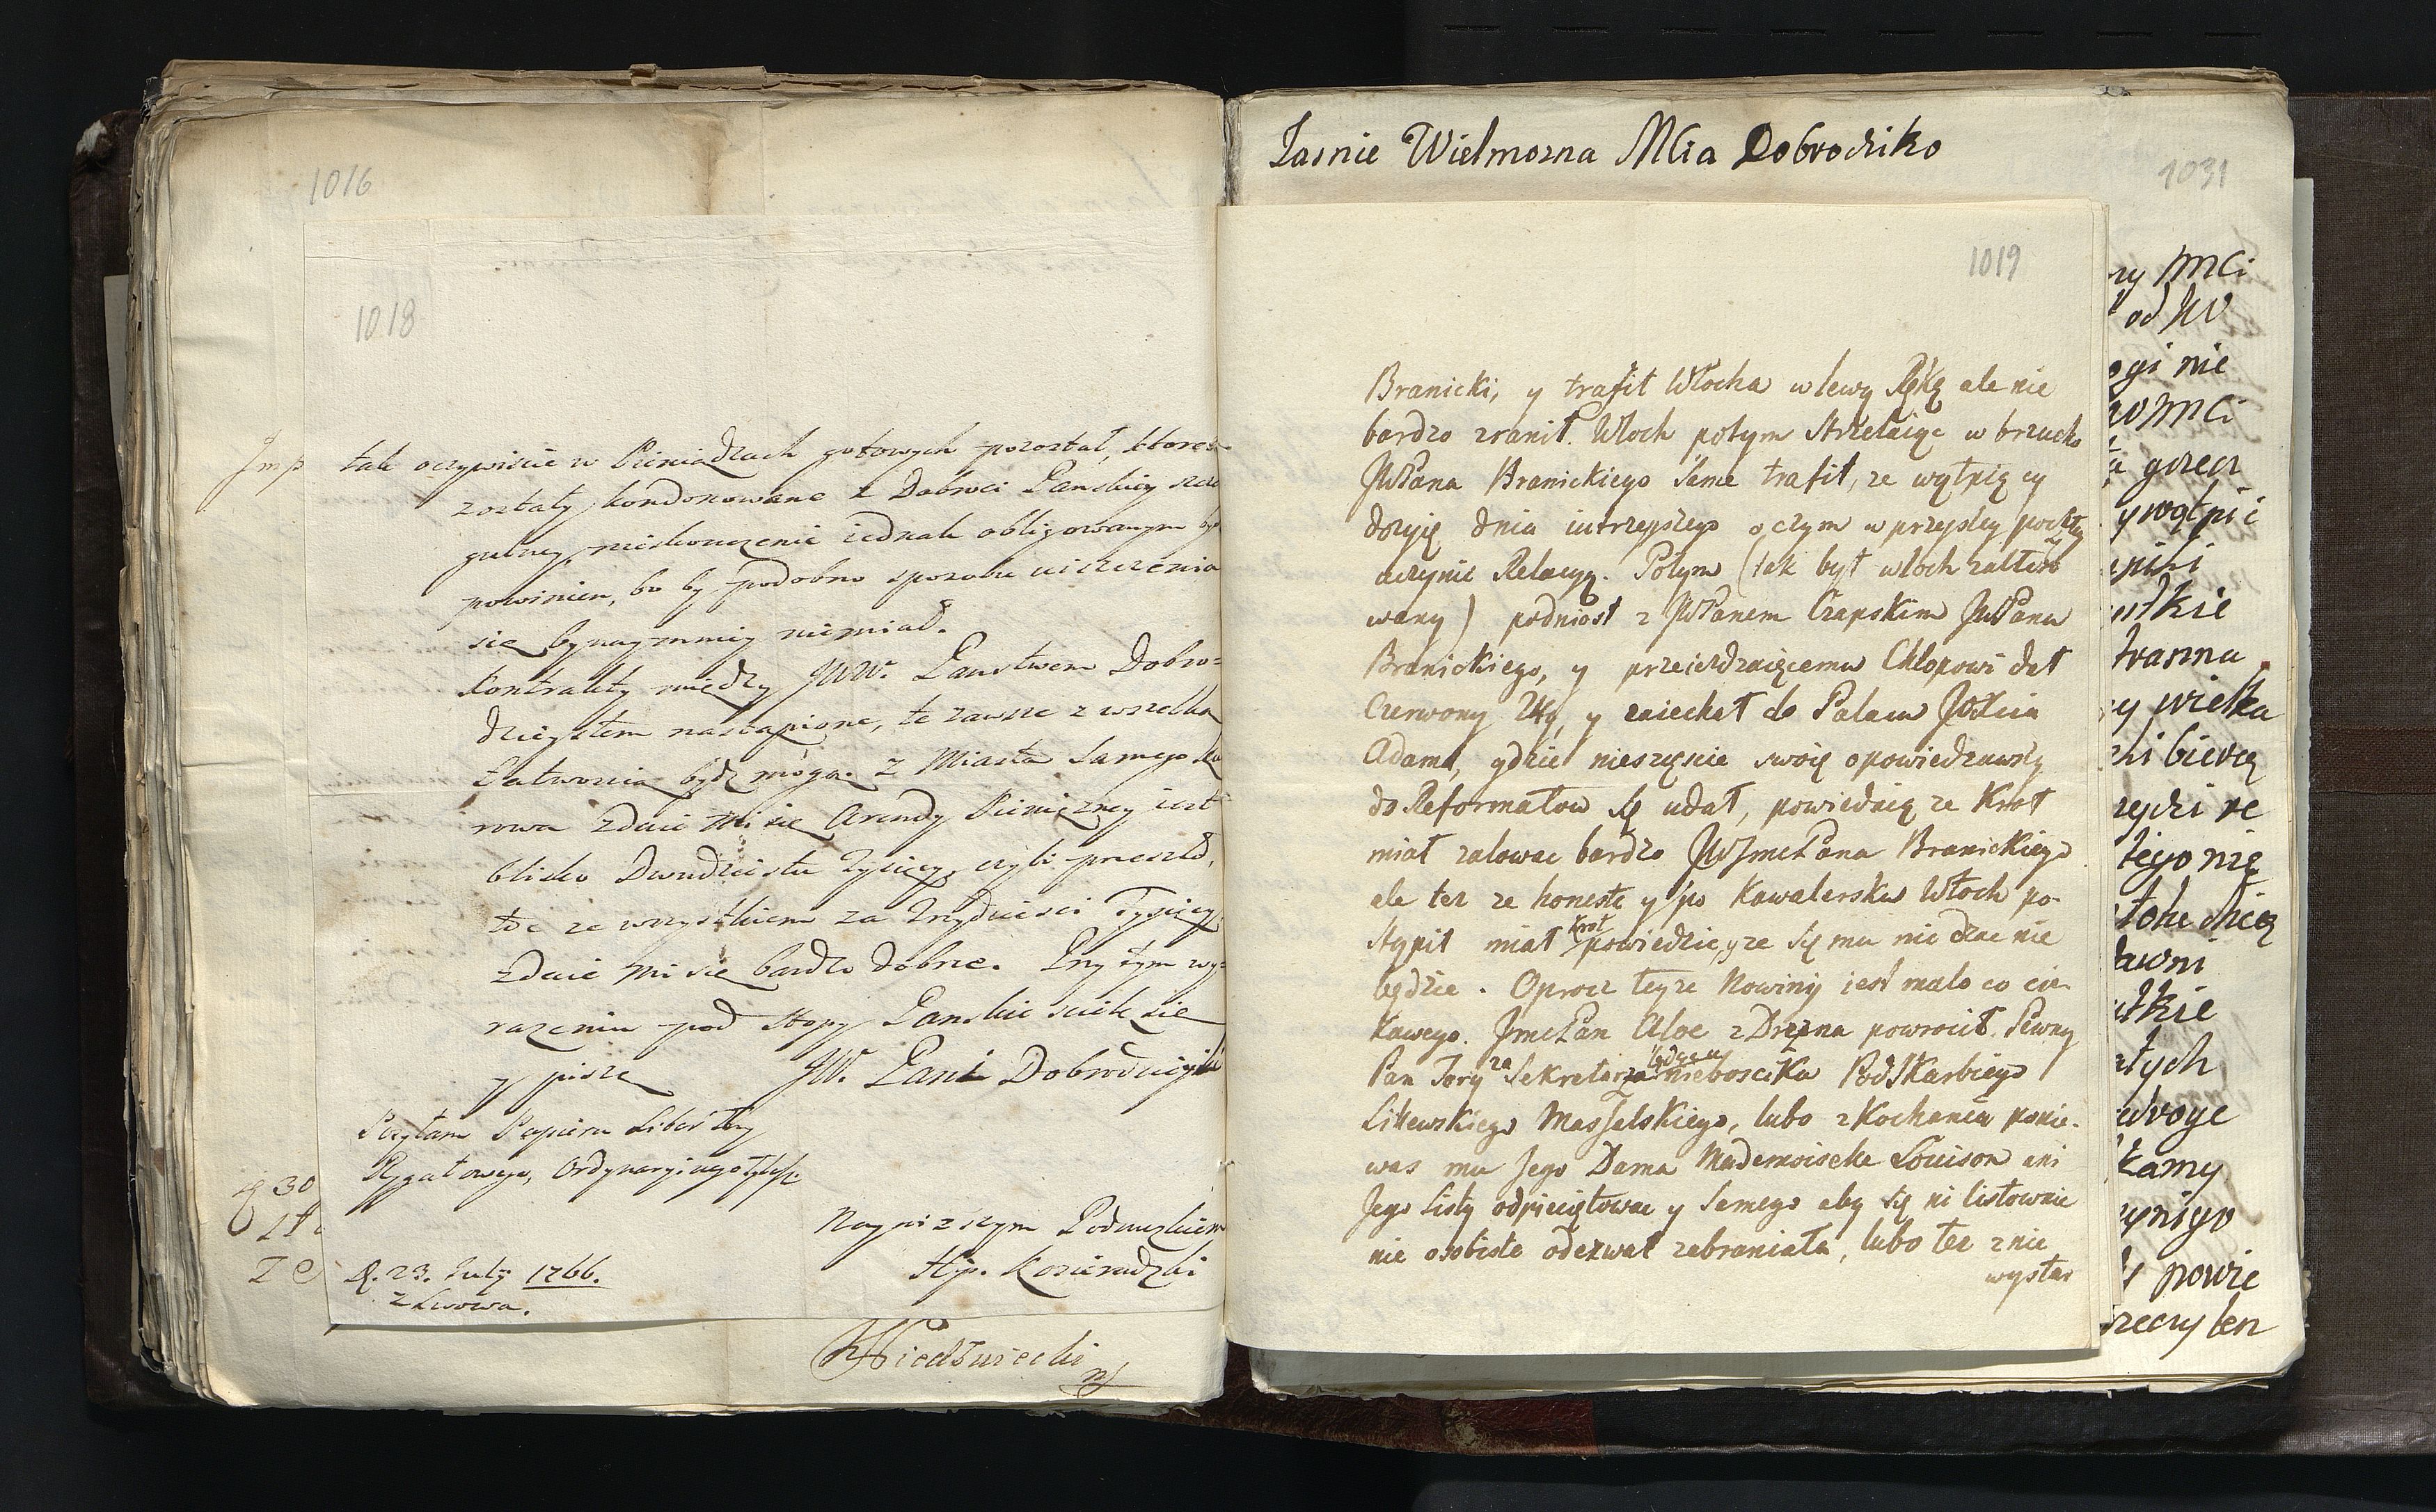 1016
1018
Imp
tak oczywiście w Pieniądzach gotowych pozostał, ktore
zostały kondonowane z Dobroci Panskiey szcze
gulney, nieskonczenie iednak obligowanym być
powinien, bo by podobno sposobu uiszczenia
się bynaymniey niemiał.
Kontrakty między JWW. Panstwem Dobro=
dzieystem nastąpione, te zawsze z wszelką
Łatwoscią bydz mogą. z Miasta Samego
rowa zdaie mi się Arendy Pienięzney iest
blisko Dwudziestu Tysięcy, czyli przeszło,
toć ze wszystkiem za Trzydzieści Tysięcy,
zdaie mi się bardzo dobrze. Przy tym wy=
razeniu pod Stopy Panskie sciele się
y piszę JW. Pani Dobrodzieyki
Posyłam Papieru Libor Trzy
Regałowego, Ordynaryinego
Nayniższym Podnuzkiem
Hip. Kozieradzki
D. 23. July 1766.
z Lwowa.
30
Ze
Niedzwiecki
Jasnie Wielmozna MCia Dobrodziko
1031
1019
Branicki, y trafił Włocha w lewą Rękę ale nie
bardzo zranił. Włoch potym strzelaiąc w brzucho
JWPana Branickiego same trafił, ze wątpię cy
dozyię dnia iutrzeyszego o czym w przyszłey poczty
uczynię Relacyą. Potym (tak był włoch zaltero
wany) podniosł z JWPanem Czapskim JWPana
Branickiego, y przeiezdzaiącemu Chłopowi dał
Czerwony Zły, y zaiechał do Palacu JOXcia
Adama, gdzie nieszczęscie swoię opowiedzawszy
do Reformatow się udał, powiedaią ze Krol
miał załowac bardzo JWJmcPana Branickiego
ale tez ze honeste y po Kawalersku Włoch po-
stąpił miał Krol powiedziec, ze się mu nic dzac nie
będzie. Oprocz teyze Nowiny iest malo co cie-
kawego. JmcPan Aloe z Drezna powrocił. Pewny
Pan Jory za Sekretarza będący nieboscika PodSkarbiego
Litewskiego Massalskiego, lubo z Kochania ponie-
was mu Jego Dama Mademoiselle Louison ani
Jego Listy odpieczętowac y Samego aby się ni listownie
nie osobiste odezwał zabraniała, lubo tez znie
wystar
ry MCi
od JW
ogi nie
MCi
grzecz
ywątpie
wielka
bierzę
tego nie
powie
rzeczy ten